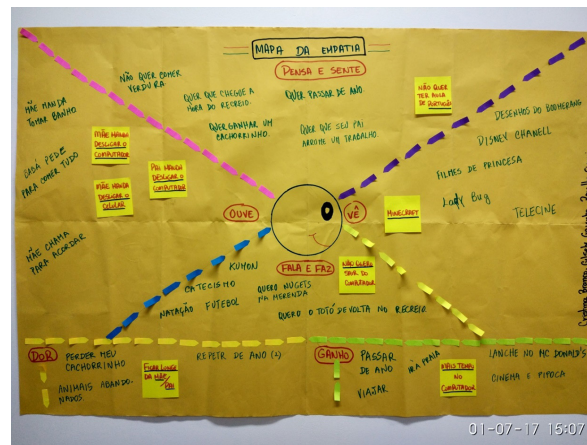 MAPA DA EMPATIA
PENSA E SENTE
NÃO QUER COMER
VERDURA.
QUER QUE CHEGUE A
HORA DO RECREIO.
QUER PASSAR DE ANO.
QUER GANHAR UM
CACHORRINHO.
QUER QUE SEU PAI
ARRUME UM TRABALHO.
NÃO QUER
TER AULA
DE PORTUGUÊS
MÃE MANDA
TOMAR BANHO
MÃE MANDA
DESLIGAR O
COMPUTADOR
BABÁ PEDE
PARA COMER TUDO
PAI MANDA
DESLIGAR O
COMPUTADOR
MÃE MANDA
DESLIGAR O
CELULAR
MÃE CHAMA
PARA ACORDAR
OUVE
VÊ
DESENHOS DO BOOMERANG
DISNEY CHANELL
FILMES DE PRINCESA
Lady Bug
TELECINE
MINECRAFT
FALA E FAZ
KUMON
CATECISMO
NATAÇÃO FUTEBOL
QUERO NUGETS
NA MERENDA
NÃO QUERO
SAIR DO
COMPUTADOR
QUERO O TOTÓ DE VOLTA NO RECREIO.
DOR
PERDER MEU
CACHORRINHO
ANIMAIS ABANDO-
NADOS.
FICAR LONGE
DA MÃE/
PAI
REPETIR DE ANO (2)
GANHO
PASSAR
DE ANO
VIAJAR
IR À PRAIA
MAIS TEMPO
NO
COMPUTADOR
LANCHE NO MC DONALD'S
CINEMA E PIPOCA
01-07-17 15:07